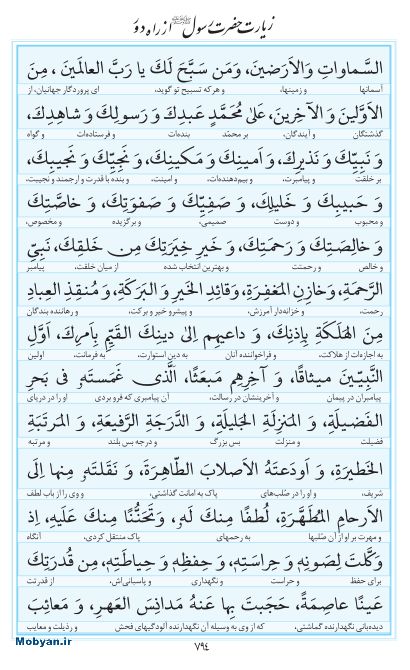 زیارت حضرت رسول ﷺ از راه دور
السَّماواتِ وَالاَرَضينَ، وَمَن سَبَّحَ لَكَ يا رَبَّ العالَمينَ ، مِنَ
آسمانها و زمینها، و هر که تسبیح تو گوید، ای پروردگار جهانیان، از
الاَوَّلينَ وَ الآخِرينَ، عَلىٰ مُحَمَّدٍ عَبدِكَ وَ رَسولِكَ وَ شاهِدِكَ،
گذشتگان و آیندگان، بر محمّد بنده‌ات و فرستاده‌ات و گواه
وَ نَبِيِّكَ وَ نَذيرِكَ، وَ اَمينِكَ وَ مَكينِكَ، وَ نَجِيِّكَ وَ نَجيبِكَ،
بر خلقت و پیامبرت، و بیم‌دهنده‌ات، و امینت، و بنده با قدرت و ارجمند و نجیبت،
وَ حَبيبِكَ وَ خَليلِكَ، وَ صَفِيِّكَ وَ صَفوَتِكَ، وَ خاصَّتِكَ
و محبوب و دوست صمیمی، و برگزیده و مخصوص،
وَ خالِصَتِكَ وَ رَحمَتِكَ، وَ خَيرِ خِيَرَتِكَ مِن خَلقِكَ، نَبِيِّ
و خالص و رحمتت و بهترین انتخاب شده از میان خلقت، پیامبر
الرَّحمَةِ، وَخازِنِ المَغفِرَةِ، وَقائِدِ الخَيرِ وَ البَرَكَةِ، وَ مُنقِذِ العِبادِ
رحمت، و خزانه‌دار آمرزش، و پیشرو خیر و برکت، و رهاننده بندگان
مِنَ الهَلَكَةِ بِاِذنِكَ، وَ داعيهِم اِلىٰ دينِكَ القَيِّمِ بِاَمرِكَ، اَوَّلِ
از هلاکت، و فراخواننده آنان به دین استوارت، به فرمانت، اولین
النَّبِيّينَ ميثاقًا، وَ آخِرِهِم مَبعَثًا، اَلَّذى غَمَستَهو فى بَحرِ
پیامبران در پیمان و آخرینشان در رسالت، آن پیامبری که فرو بردی او را در دریای
الفَضيلَةِ، وَ المَنزِلَةِ الجَليلَةِ، وَ الدَّرَجَةِ الرَّفيعَةِ، وَ المَرتَبَةِ
فضیلت و منزلت بس بزرگ و درجه بس بلند و مرتبه
الخَطيرَةِ، وَ اَودَعتَهُ الاَصلابَ الطّاهِرَةَ، وَ نَقَلتَهو مِنها اِلَى
شریف، و او را در صُلب‌های پاک به امانت گذاشتی، و وی را از باب لطف
الاَرحامِ المُطَهَّرَةِ، لُطفًا مِنكَ لَهو وَ تَحَنُّنًا مِنكَ عَلَيهِ، اِذ
و مهرت بر او از آن صُلبها به رحمهای پاک منتقل کردی، آنگاه
وَكَّلتَ لِصَونِهى وَ حِراسَتِهى، وَ حِفظِهى وَ حِياطَتِهى، مِن قُدرَتِكَ
برای حفظ و حراست و نگهداری و پاسبانی‌اش، از قدرتت
عَينًا عاصِمَةً، حَجَبتَ بِها عَنهُ مَدانِسَ العَهرِ، وَ مَعائِبَ
دیده‌بانی نگهدارنده گماشتی، که از وی به وسیله آن نگهدارنده آلودگیهای فحش و رذیلت و معایب
Mobyan.ir
٧٩٤